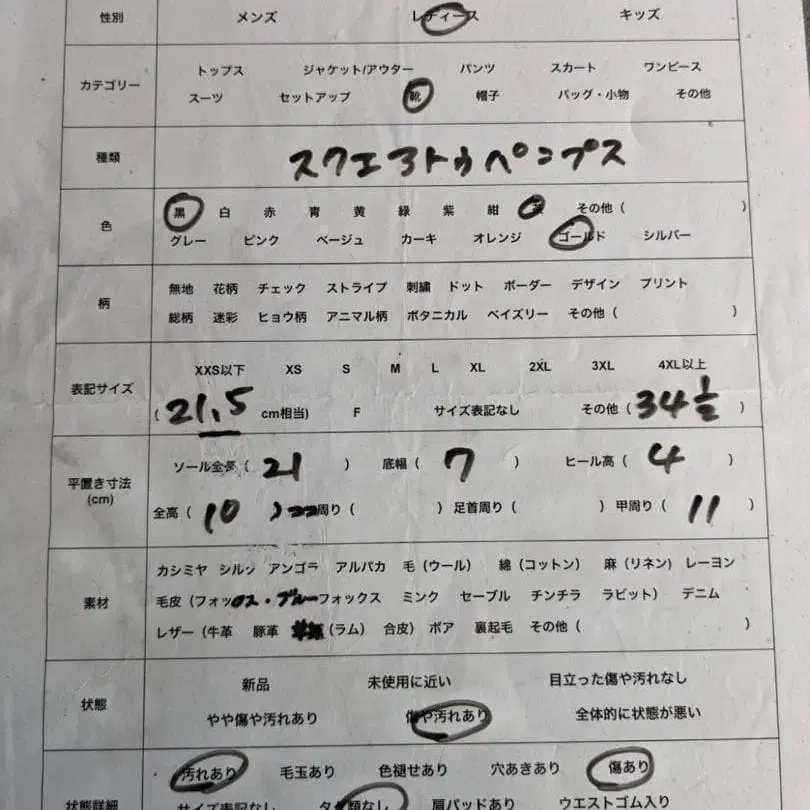 性別 メンズ レディース キッズ
カテゴリー
トップス ジャケット/アウター パンツ スカート ワンピース
スーツ セットアップ 靴 帽子 バッグ・小物 その他
種類 スクエアトゥペンプス
色
黒 白 赤 青 黄 緑 紫 紺 その他（ ）
グレー ピンク ベージュ カーキ オレンジ ゴールド シルバー
柄
無地 花柄 チェック ストライプ 刺繍 ドット ボーダー デザイン プリント
総柄 迷彩 ヒョウ柄 アニマル柄 ボタニカル ペイズリー その他（ ）
表記サイズ
XXS以下 XS S M L XL 2XL 3XL 4XL以上
（21.5 cm相当) F サイズ表記なし その他（34 1/2 ）
平置き寸法
(cm)
ソール全長（ 21 ） 底幅（ 7 ） ヒール高（ 4 ）
全高（ 10 ）ココ周り（ ）足首周り（ ）甲周り（ 11 ）
素材
カシミヤ シルク アンゴラ アルパカ 毛（ウール） 綿（コットン） 麻（リネン） レーヨン
毛皮（フォックス・ブルーフォックス ミンク セーブル チンチラ ラビット） デニム
レザー（牛革 豚革 （ラム） 合皮）ボア 裏起毛 その他（ ）
状態
新品 未使用に近い 目立った傷や汚れなし
やや傷や汚れあり 傷や汚れあり 全体的に状態が悪い
状態詳細
汚れあり 毛玉あり 色褪せあり 穴あきあり 傷あり
サイズ表記なし タグ類なし 肩パッドあり ウエストゴム入り